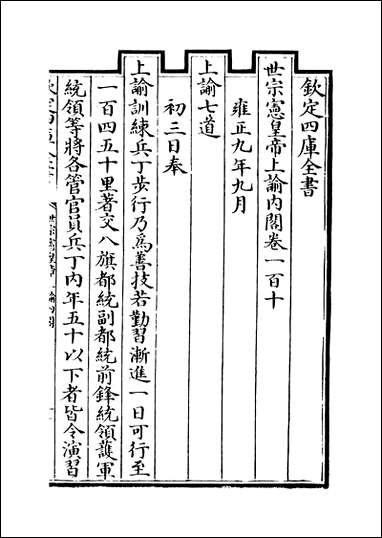 欽定四庫全書
世宗憲皇帝上諭内閣卷一百十
雍正九年九月
上諭七道
初三日奉
上諭訓練兵丁步行乃爲善技若勤習漸進一日可行至
一百四五十里著交八旗都統副都統前鋒統領護軍
統領等將各管官員兵丁内年五十以下者皆令演習